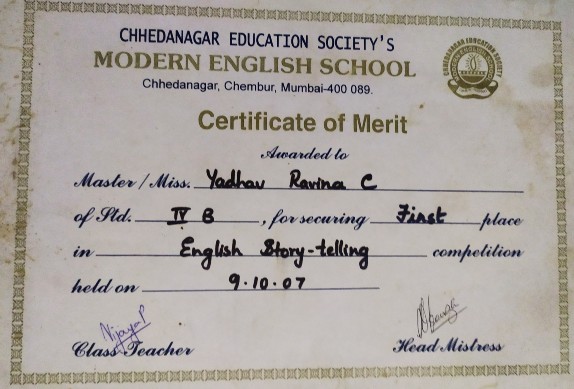 CHHEDANAGAR EDUCATION SOCIETY'S
MODERN ENGLISH SCHOOL
Chhedanagar, Chembur, Mumbai-400 089.
Certificate of Merit
Awarded to
Master / Miss. Yadhav Ravina C
of Std. IV B , for securing First place
in English Story-telling competition
held on 9.10.07
Class Teacher Head Mistress